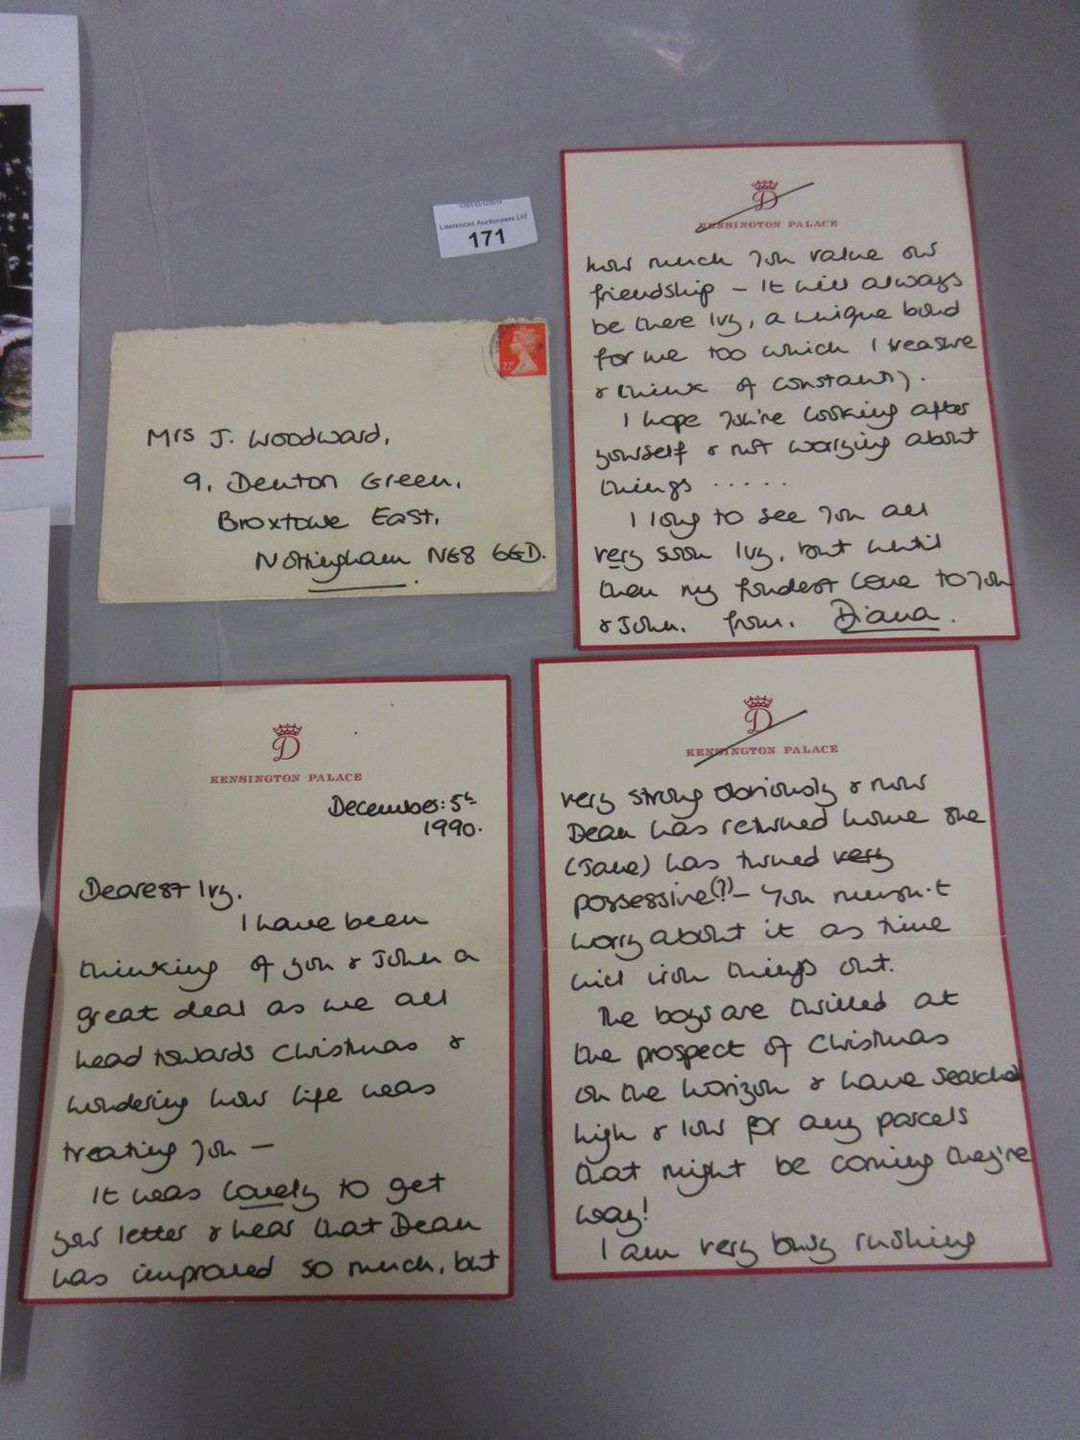 Lawrences Auctioneers Ltd
171
22P
Mrs J. Woodward,
9, Denton Green,
Broxtowe East,
Nottingham NG8 6GD.
D
KENSINGTON PALACE
December: 5th
1990.
Dearest Ivy,
I have been
thinking of you & John a
great deal as we all
head towards Christmas &
wondering how life was
treating you —
It was lovely to get
your letter & hear that Dean
has improved so much, but
D
KENSINGTON PALACE
very strong obviously & now
Dean has returned home she
(Jane) has turned very
possessive(?) - You mustn't
worry about it as time
will iron things out.
The boys are thrilled at
the prospect of Christmas
on the horizon & have searched
high & low for any parcels
that might be coming they're
way!
I am very busy rushing
D
KENSINGTON PALACE
how much you value our
friendship - It will always
be there Ivy, a unique bond
for me too which I treasure
& think of constantly.
I hope you're looking after
yourself & not worrying about
things .....
I long to see you all
very soon Ivy, but until
then my fondest love to you
& John, from. Diana.